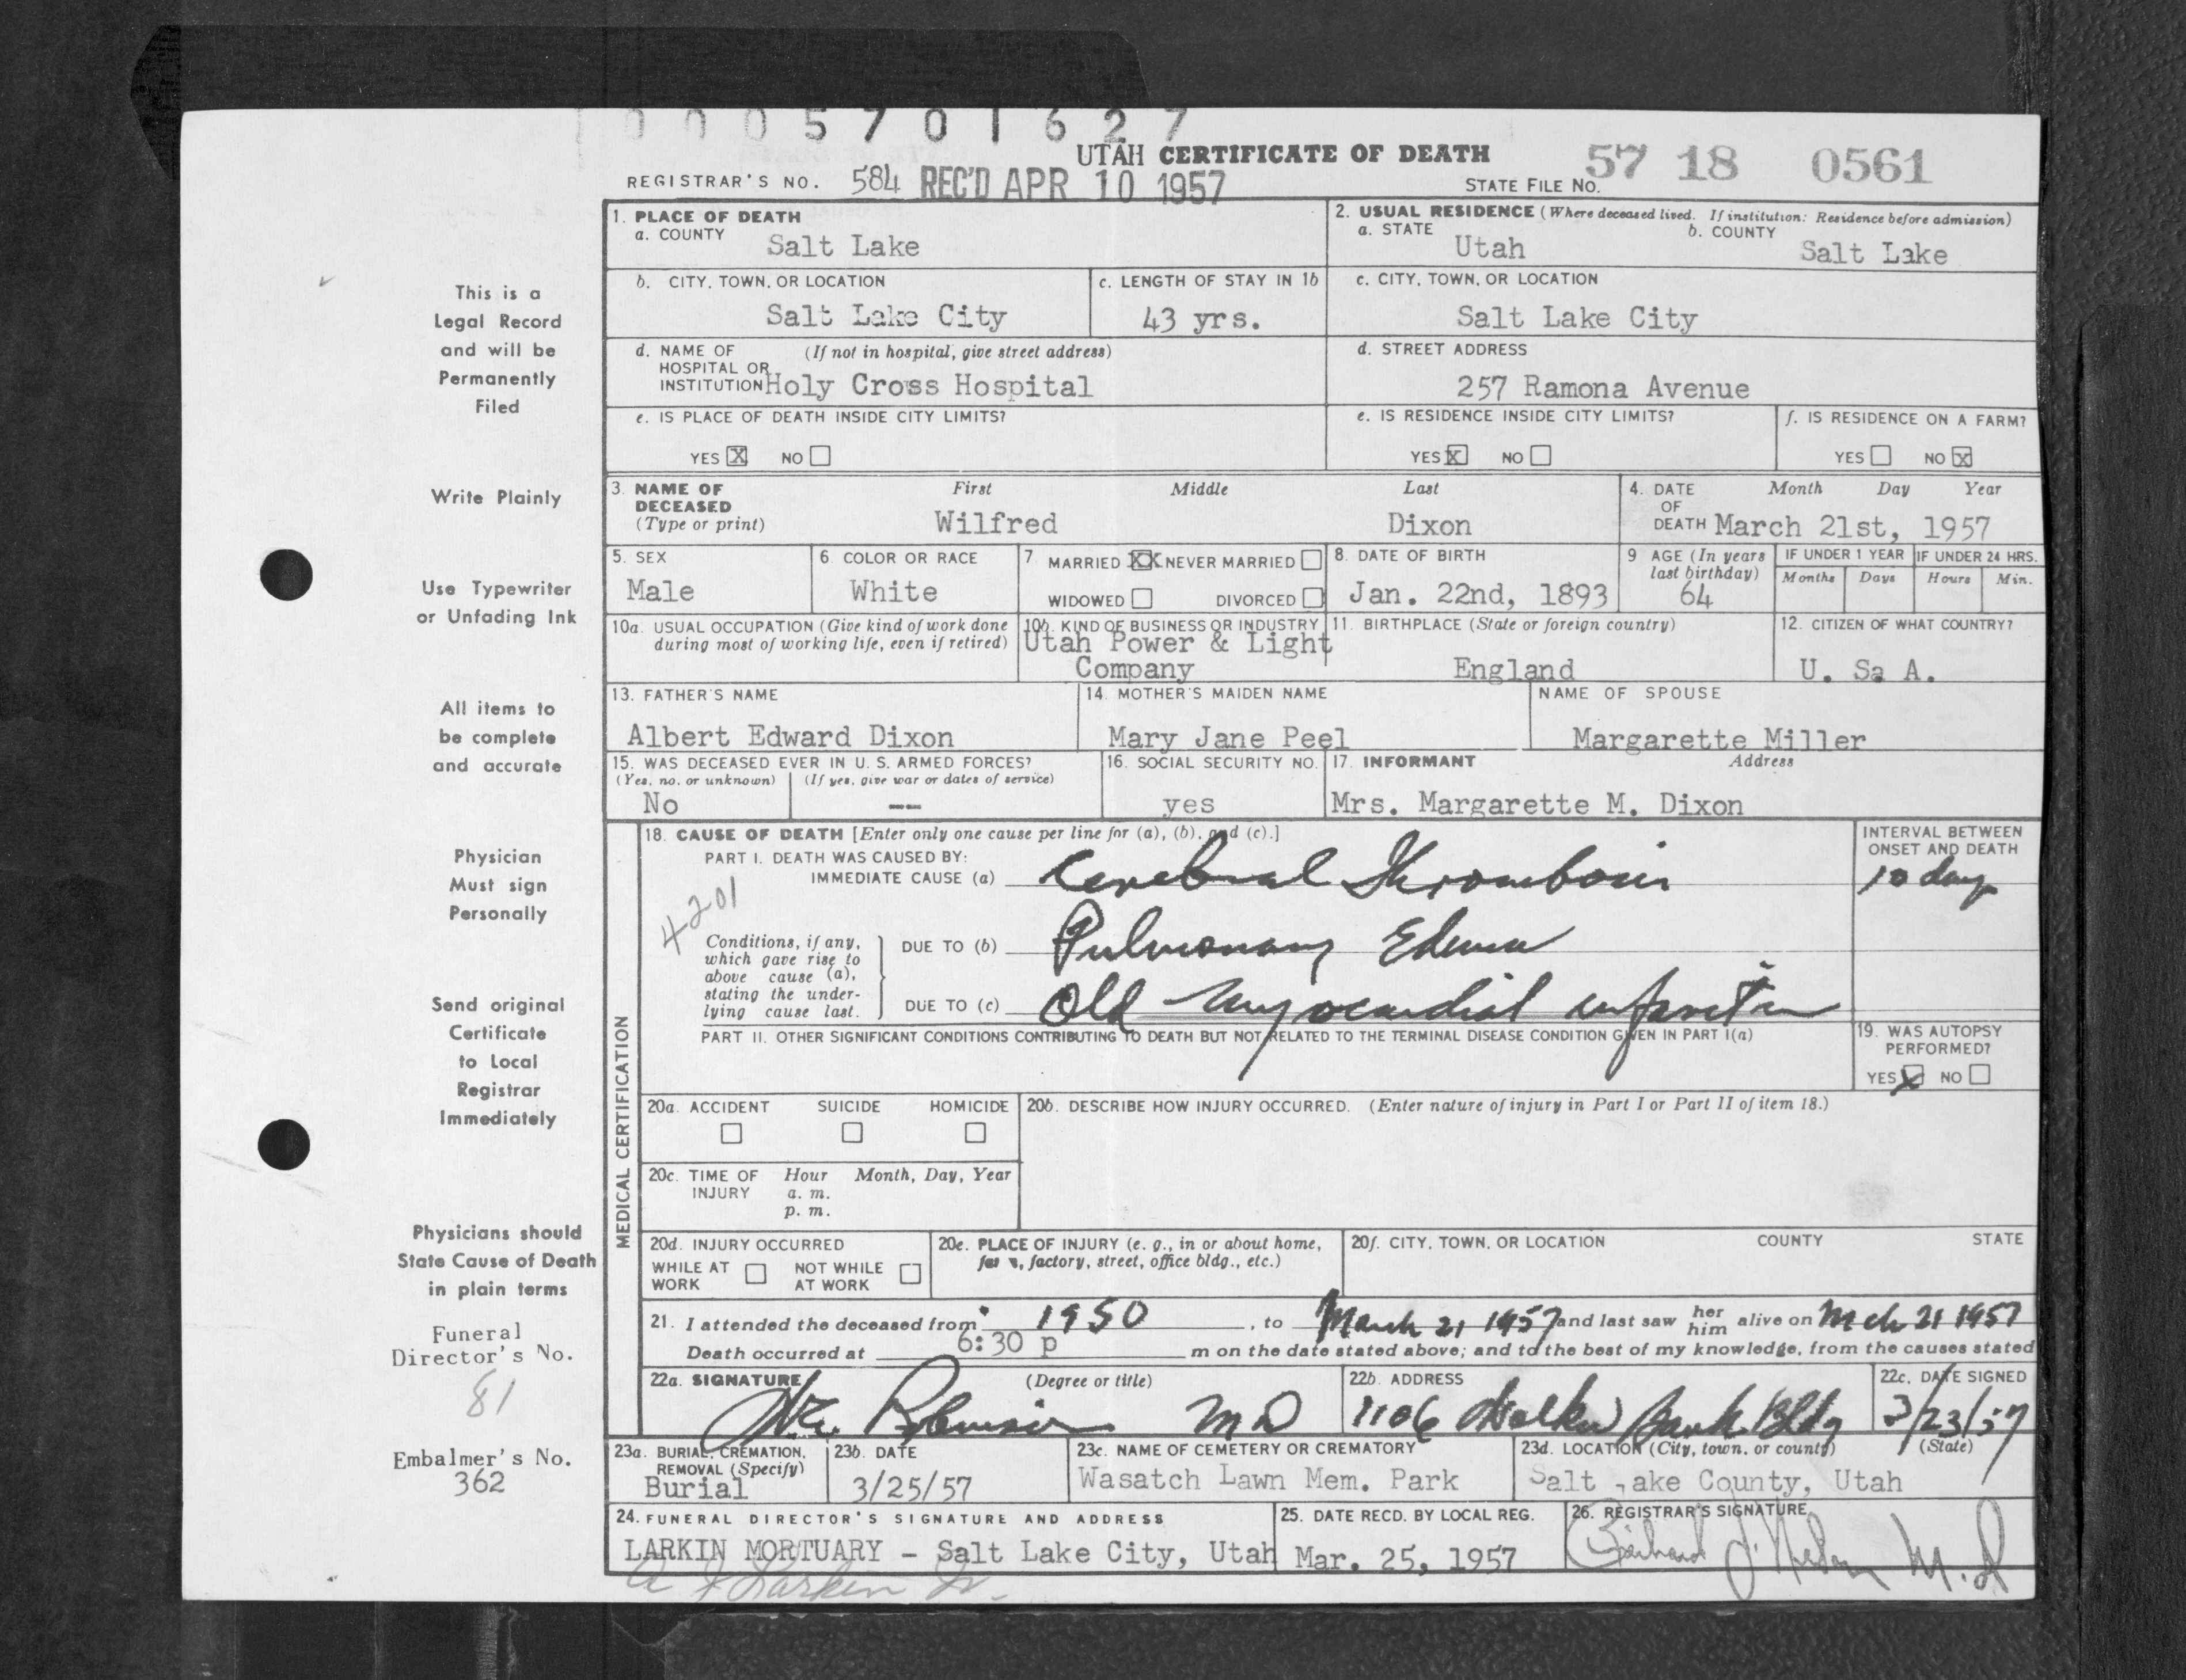 0005701627
UTAH CERTIFICATE OF DEATH
REGISTRAR'S NO. 584 REC'D APR 10 1957 STATE FILE NO. 57 18 0561
This is a
Legal Record
and will be
Permanently
Filed
Write Plainly
Use Typewriter
or Unfading Ink
All items to
be complete
and accurate
Physician
Must sign
Personally
Send original
Certificate
to Local
Registrar
Immediately
Physicians should
State Cause of Death
in plain terms
Funeral
Director's No.
81
Embalmer's No.
362
1. PLACE OF DEATH
a. COUNTY Salt Lake
2. USUAL RESIDENCE (Where deceased lived. If institution: Residence before admission)
a. STATE Utah b. COUNTY Salt Lake
b. CITY, TOWN, OR LOCATION Salt Lake City
c. LENGTH OF STAY IN 1b 43 yrs.
c. CITY, TOWN, OR LOCATION Salt Lake City
d. NAME OF (If not in hospital, give street address)
HOSPITAL OR
INSTITUTION Holy Cross Hospital
d. STREET ADDRESS
257 Ramona Avenue
e. IS PLACE OF DEATH INSIDE CITY LIMITS?
YES X NO
e. IS RESIDENCE INSIDE CITY LIMITS?
YES X NO
f. IS RESIDENCE ON A FARM?
YES NO X
3. NAME OF DECEASED (Type or print)
First Middle Last
Wilfred Dixon
4. DATE OF DEATH Month Day Year
March 21st, 1957
5. SEX
Male
6. COLOR OR RACE
White
7 MARRIED XX NEVER MARRIED
WIDOWED DIVORCED
8. DATE OF BIRTH
Jan. 22nd, 1893
9 AGE (In years last birthday)
64
IF UNDER 1 YEAR IF UNDER 24 HRS.
Months Days Hours Min.
10a. USUAL OCCUPATION (Give kind of work done
during most of working life, even if retired)
10b. KIND OF BUSINESS OR INDUSTRY
Utah Power & Light
Company
11. BIRTHPLACE (State or foreign country)
England
12. CITIZEN OF WHAT COUNTRY?
U. Sa A.
13. FATHER'S NAME
Albert Edward Dixon
14. MOTHER'S MAIDEN NAME
Mary Jane Peel
NAME OF SPOUSE
Margarette Miller
15. WAS DECEASED EVER IN U. S. ARMED FORCES?
(Yes, no, or unknown) (If yes, give war or dates of service)
No --
16. SOCIAL SECURITY NO.
yes
17. INFORMANT Address
Mrs. Margarette M. Dixon
MEDICAL CERTIFICATION
18. CAUSE OF DEATH [Enter only one cause per line for (a), (b), and (c).]
PART I. DEATH WAS CAUSED BY:
IMMEDIATE CAUSE (a) Cerebral Thrombosis
INTERVAL BETWEEN
ONSET AND DEATH
10 days
4201
Conditions, if any,
which gave rise to
above cause (a),
stating the under-
lying cause last.
DUE TO (b) Pulmonary Edema
DUE TO (c) Old Myocardial infarction
PART II. OTHER SIGNIFICANT CONDITIONS CONTRIBUTING TO DEATH BUT NOT RELATED TO THE TERMINAL DISEASE CONDITION GIVEN IN PART I(a)
19. WAS AUTOPSY
PERFORMED?
YES X NO
20a. ACCIDENT SUICIDE HOMICIDE
20b. DESCRIBE HOW INJURY OCCURRED. (Enter nature of injury in Part I or Part II of item 18.)
20c. TIME OF INJURY Hour Month, Day, Year
a. m.
p. m.
20d. INJURY OCCURRED
WHILE AT WORK NOT WHILE AT WORK
20e. PLACE OF INJURY (e. g., in or about home,
factory, street, office bldg., etc.)
20f. CITY, TOWN, OR LOCATION COUNTY STATE
21. I attended the deceased from 1950, to March 21 1957 and last saw her him alive on Mch 21 1957
Death occurred at 6:30 p m on the date stated above; and to the best of my knowledge, from the causes stated
22a. SIGNATURE (Degree or title)
Robinson MD
22b. ADDRESS
1106 Walker Bank Bldg
22c. DATE SIGNED
3/23/57
23a. BURIAL, CREMATION,
REMOVAL (Specify)
Burial
23b. DATE
3/25/57
23c. NAME OF CEMETERY OR CREMATORY
Wasatch Lawn Mem. Park
23d. LOCATION (City, town, or county) (State)
Salt ake County, Utah
24. FUNERAL DIRECTOR'S SIGNATURE AND ADDRESS
LARKIN MORTUARY - Salt Lake City, Utah
25. DATE RECD. BY LOCAL REG.
Mar. 25, 1957
26. REGISTRAR'S SIGNATURE
M.D
Larkin Jr.